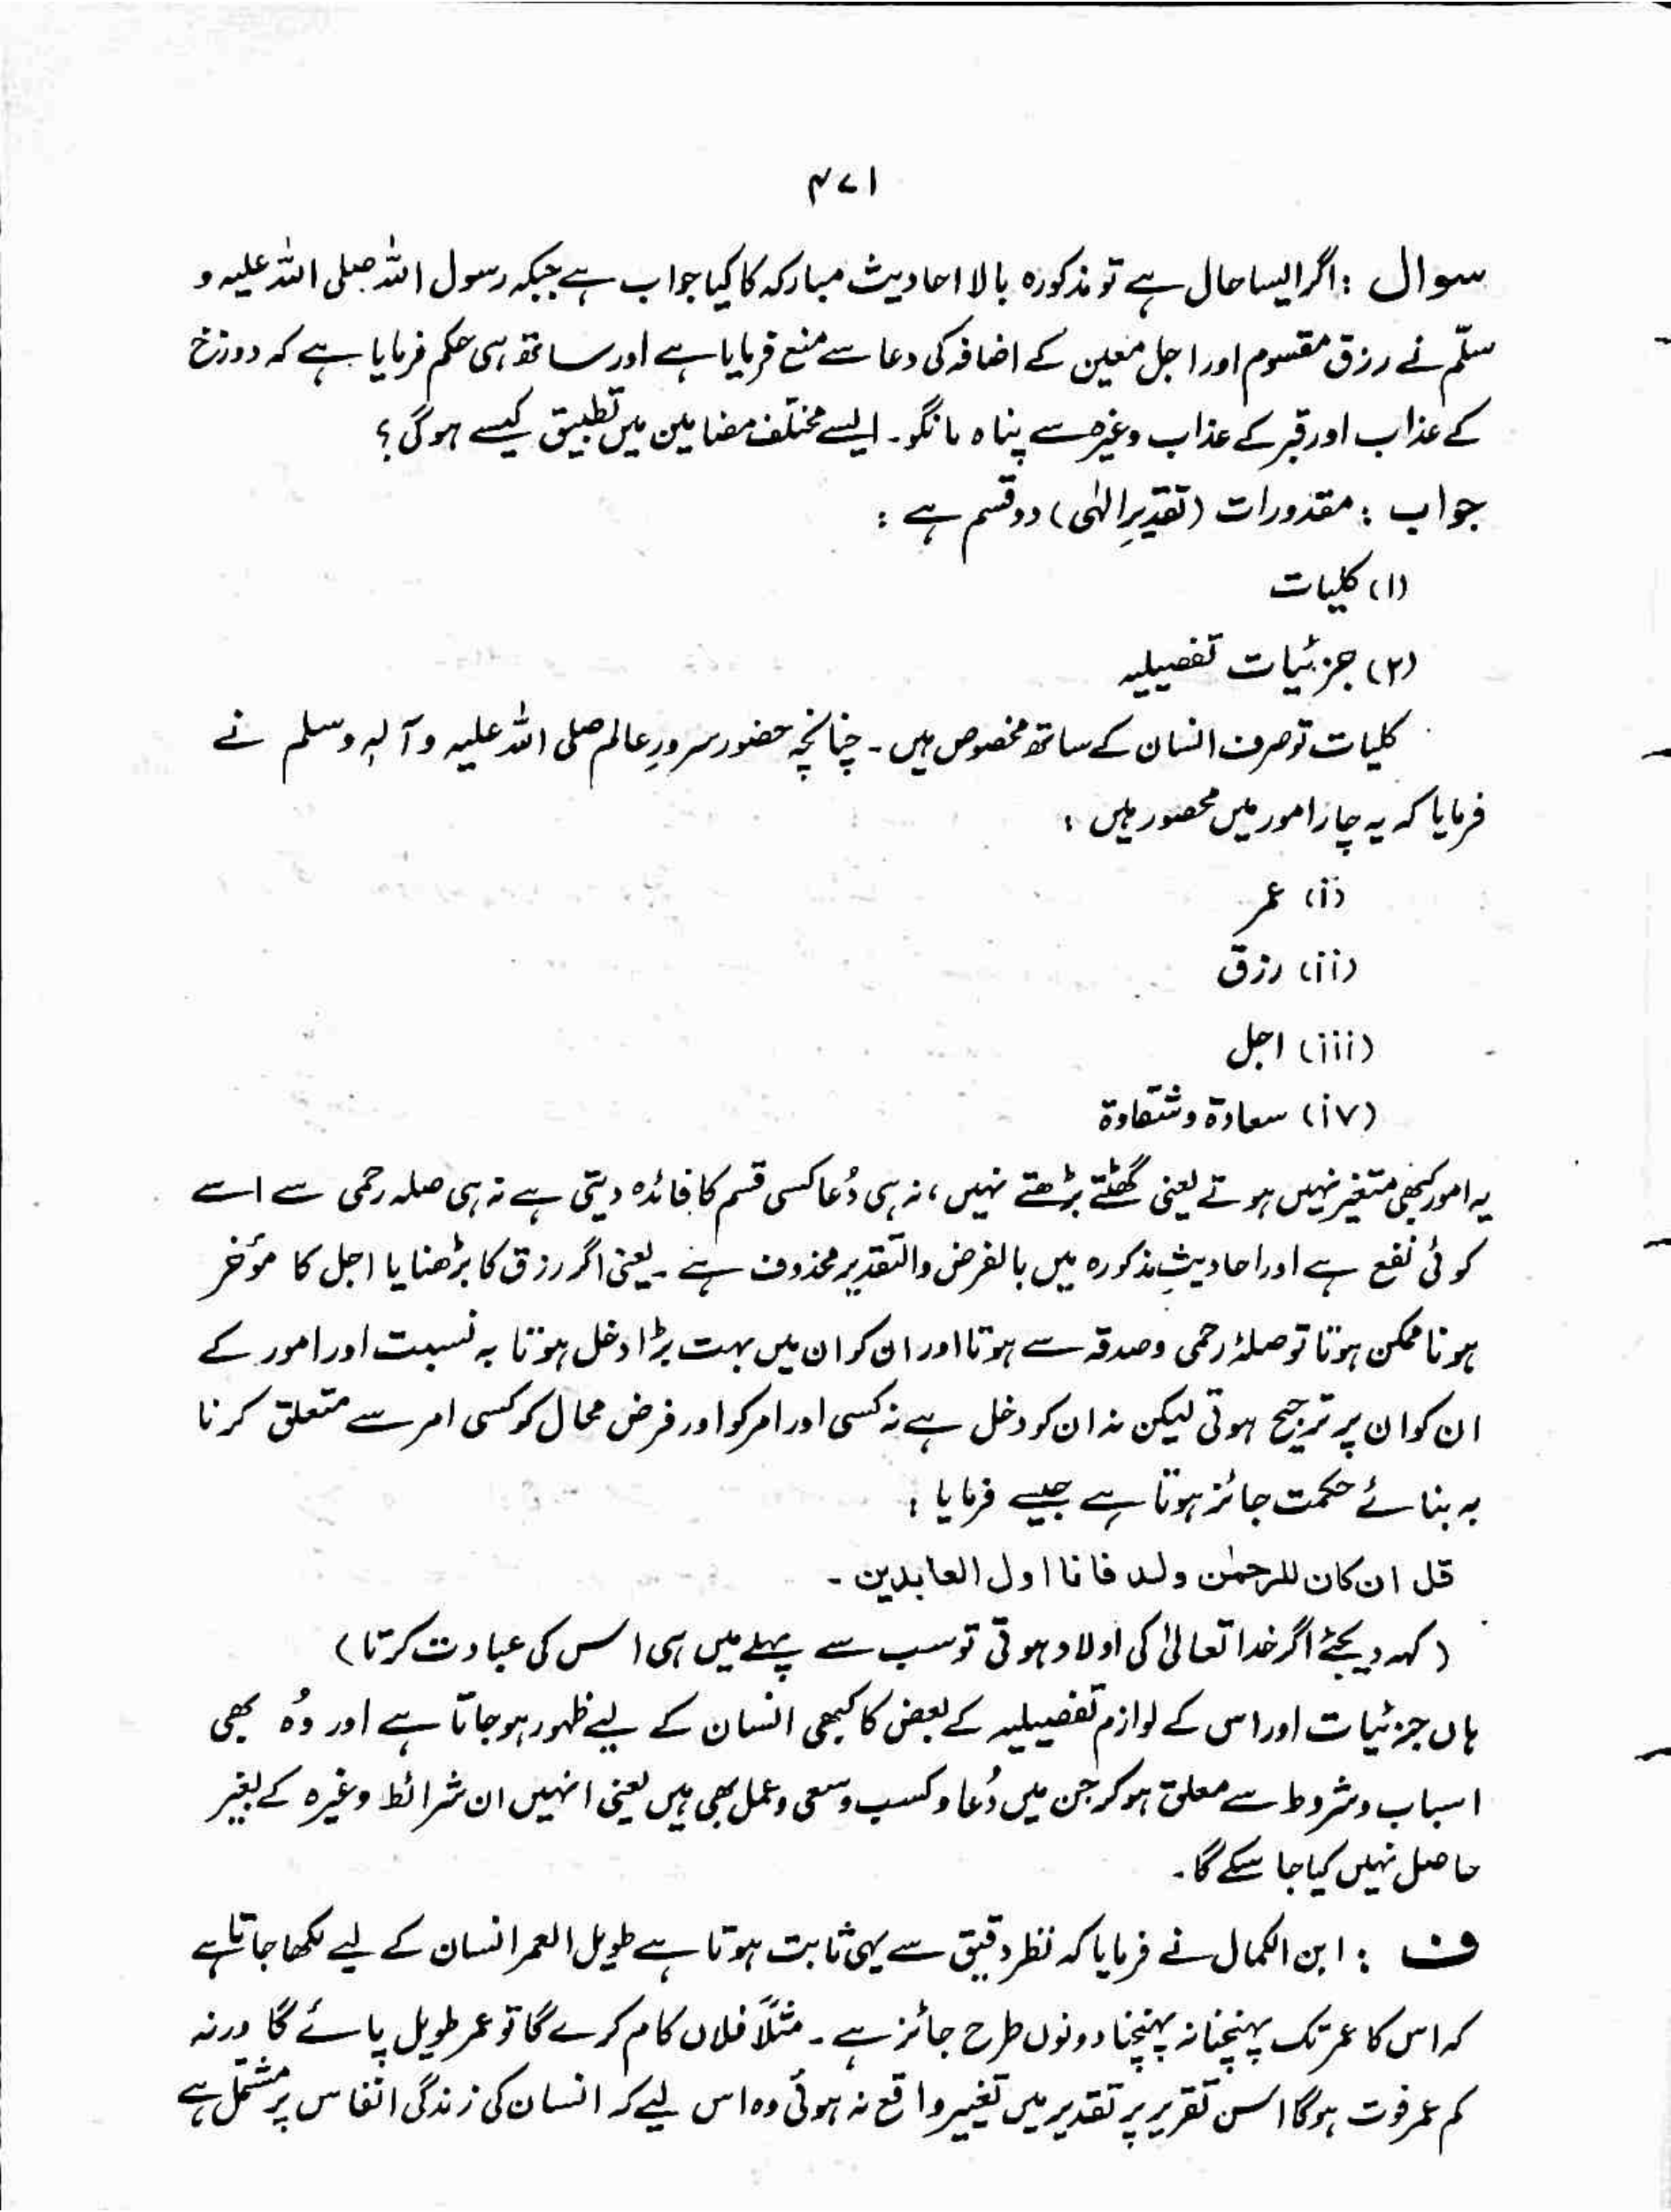 ۴۷۱
سوال : اگر ایسا حال ہے تو مذکورہ بالا احادیث مبارکہ کا کیا جواب ہے جبکہ رسول اللہ صلی اللہ علیہ و
سلّم نے رزق مقسوم اور اجل معین کے اضافہ کی دعا سے منع فرمایا ہے اور ساتھ ہی حکم فرمایا ہے کہ دوزخ
کے عذاب اور قبر کے عذاب وغیرہ سے پناہ مانگو۔ ایسے مختلف مضامین میں تطبیق کیسے ہوگی ؟
جواب : مقدورات (تقدیرِ الٰہی) دو قسم ہے :
(۱) کلیات
(۲) جزئیات تفصیلیہ
کلیات تو صرف انسان کے ساتھ مخصوص ہیں۔ چنانچہ حضور سرورِ عالم صلی اللہ علیہ وآلہٖ وسلم نے
فرمایا کہ یہ چار امور میں محصور ہیں :
(i) عمر
(ii) رزق
(iii) اجل
(iv) سعادۃ و شقاوۃ
یہ امور کبھی متغیر نہیں ہوتے یعنی گھٹتے بڑھتے نہیں، نہ ہی دُعا کسی قسم کا فائدہ دیتی ہے نہ ہی صلہ رحمی سے اسے
کوئی نفع ہے اور احادیثِ مذکورہ میں بالفرض والتقدیر محذوف ہے۔ یعنی اگر رزق کا بڑھنا یا اجل کا مؤخر
ہونا ممکن ہوتا تو صلۂ رحمی و صدقہ سے ہوتا اور ان کو ان میں بہت بڑا دخل ہوتا بہ نسبت اور امور کے
ان کو ان پر ترجیح ہوتی لیکن نہ ان کو دخل ہے نہ کسی اور امر کو اور فرض محال کو کسی امر سے متعلق کرنا
بہ بنائے حکمت جائز ہوتا ہے جیسے فرمایا :
قل ان کان للرحمٰن ولد فانا اول العابدین ۔
(کہہ دیجئے اگر خدا تعالیٰ کی اولاد ہوتی تو سب سے پہلے میں ہی اس کی عبادت کرتا)
ہاں جزئیات اور اس کے لوازم تفصیلیہ کے بعض کا کبھی انسان کے لیے ظہور ہوجاتا ہے اور وُہ بھی
اسباب و شروط سے معلق ہو کر جن میں دُعا و کسب و سعی و عمل بھی ہیں یعنی انہیں ان شرائط وغیرہ کے بغیر
حاصل نہیں کیا جا سکے گا۔
ف : ابن الکمال نے فرمایا کہ نظر دقیق سے یہی ثابت ہوتا ہے طویل العمر انسان کے لیے لکھا جاتا ہے
کہ اس کا عمر تک پہنچنا نہ پہنچنا دونوں طرح جائز ہے۔ مثلاً فلاں کام کرے گا تو عمر طویل پائے گا ورنہ
کم عمر فوت ہوگا اس تقریر پر تقدیر میں تغییر واقع نہ ہوئی وہ اس لیے کہ انسان کی زندگی انفاس پر مشتمل ہے